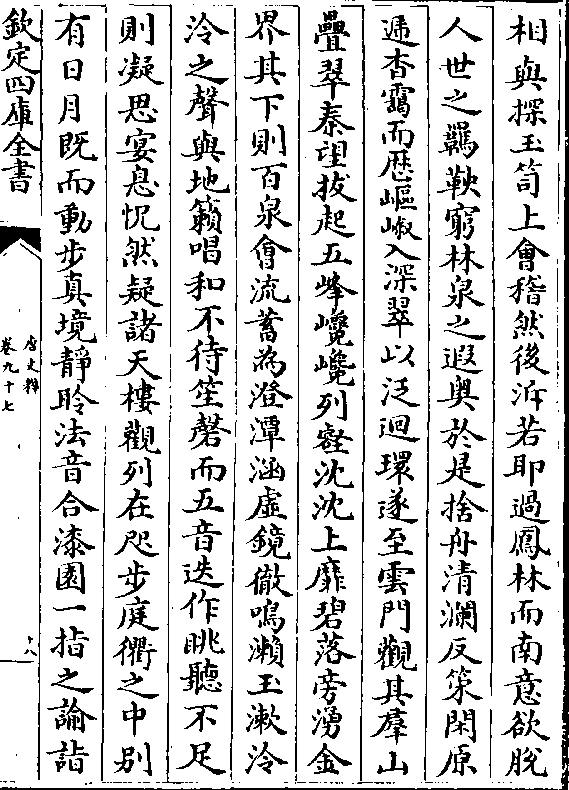 相與探玉笥上會稽然後泝若耶過鳳林而南意欲脫
人世之羈鞅窮林泉之遐奥於是捨舟清瀾反策閑原
遞杳靄而歴嶇嶔入深翠以泛迴環遂至雲門觀其羣山
疊翠秦望拔起五峰巉巉列壑沈沈上靡碧落旁湧金
界其下則百泉㑹流蓄為澄潭涵虛鏡徹鳴瀨玉漱泠
泠之聲與地籟唱和不待笙磬而五音迭作眺聽不足
則凝思宴息怳然疑諸天樓觀列在咫步庭衢之中别
有日月既而動步真境靜聆法音合漆園一指之諭詣
欽定四庫全書
唐文粹
卷九十七
十八